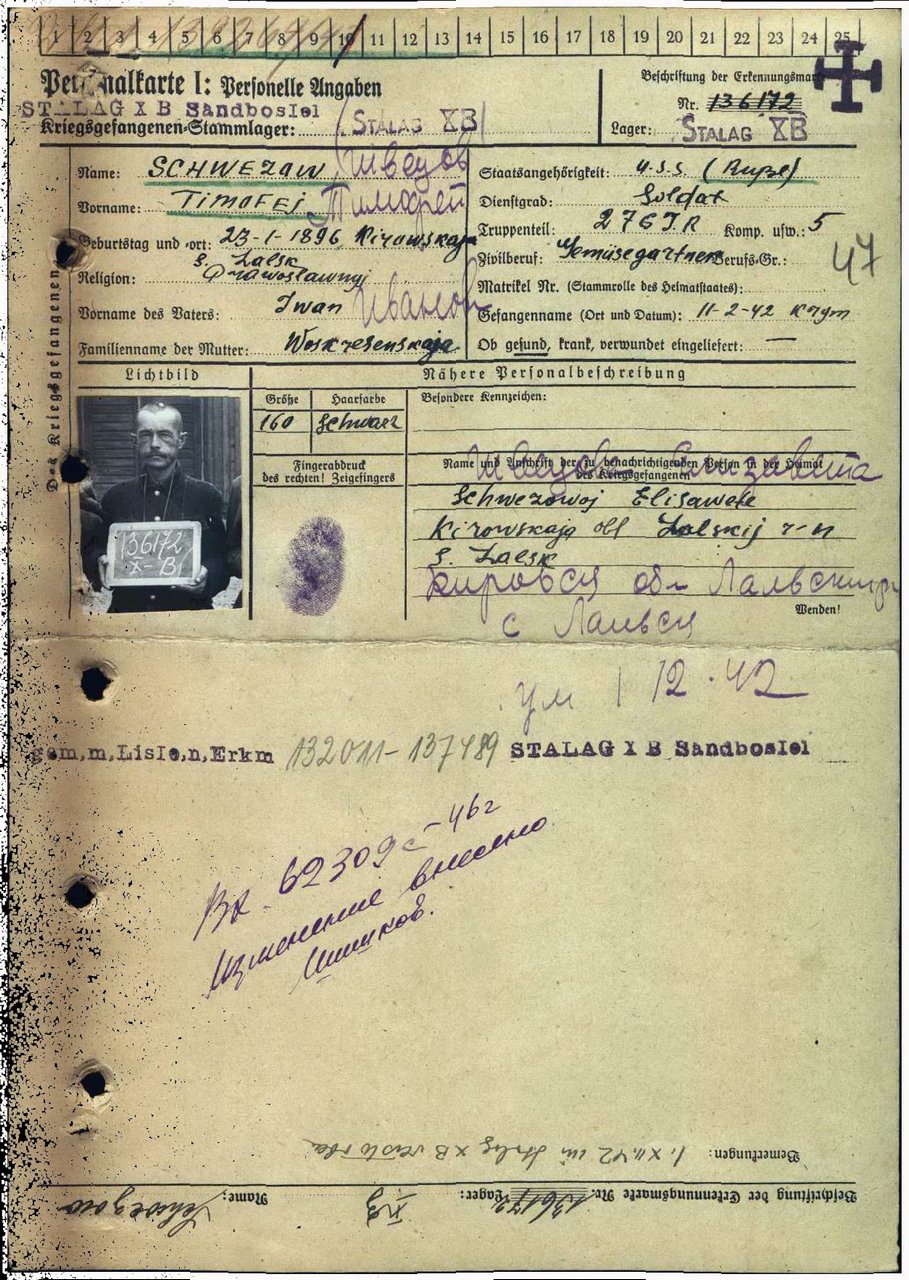 1 2 3 4 5 6 7 8 9 10 11 12 13 14 15 16 17 18 19 20 21 22 23 24 25
Personalkarte I: Personelle Angaben
STALAG X B Sandbostel
Kriegsgefangenen-Stammlager: STALAG XB
Beschriftung der Erkennungsmarke
Nr. 136172
Lager: STALAG XB
Des Kriegsgefangenen
Name: SCHWEZOW Швецов
Vorname: TIMOFEJ Тимофей
Geburtstag und -ort: 23-1-1896, Kirowskaja
S. Lalsk
Religion: Prawoslawnyj
Vorname des Vaters: Iwan Иванов
Familienname der Mutter: Woskresenskaja
Staatsangehörigkeit: U.S.S. (Ruße)
Dienstgrad: Soldat
Truppenteil: 276 I.R Komp. usw.: 5
Zivilberuf: Gemüsegartner Berufs-Gr.: 47
Matrikel Nr. (Stammrolle des Heimatstaates):
Gefangenname (Ort und Datum): 11-2-42 Krym
Ob gesund, krank, verwundet eingeliefert: —
Lichtbild
136172
X-B
Nähere Personalbeschreibung
Größe Haarfarbe
160 Schwarz
Besondere Kennzeichen:
Fingerabdruck
des rechten! Zeigefingers
Name und Anschrift der zu benachrichtigenden Person in der Heimat
des Kriegsgefangenen
Швецова Елизавета
Schwezowoj Elisawete
Kirowskaja obl Lalskij r-n
S. Lalsk
Кировск обл Лальский
с Лальск
Wenden!
ум 1 12.42
gem.m.Liste,n,Erkm 132011-137489 STALAG X B Sandbostel
Вх. 62309с-46г
Изменение внесено
Bemerkungen: 1.XII.42 im Stalag XB verstorben
Beschriftung der Erkennungsmarke Nr. 136172 Lager: XB Name: Schwezow